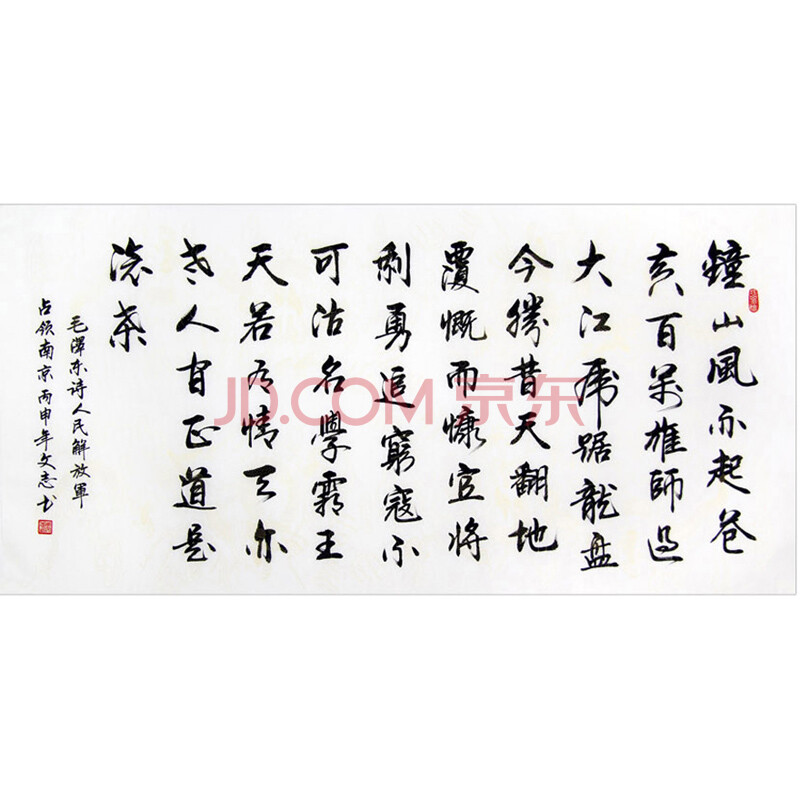 鐘山風雨起苍
黄百萬雄師過
大江虎踞龍盘
今勝昔天翻地
覆慨而慷宜將
剩勇追窮寇不
可沽名學霸王
天若有情天亦
老人间正道是
滄桑
毛澤东诗人民解放軍
占领南京丙申年文志书
JD.COM 京东